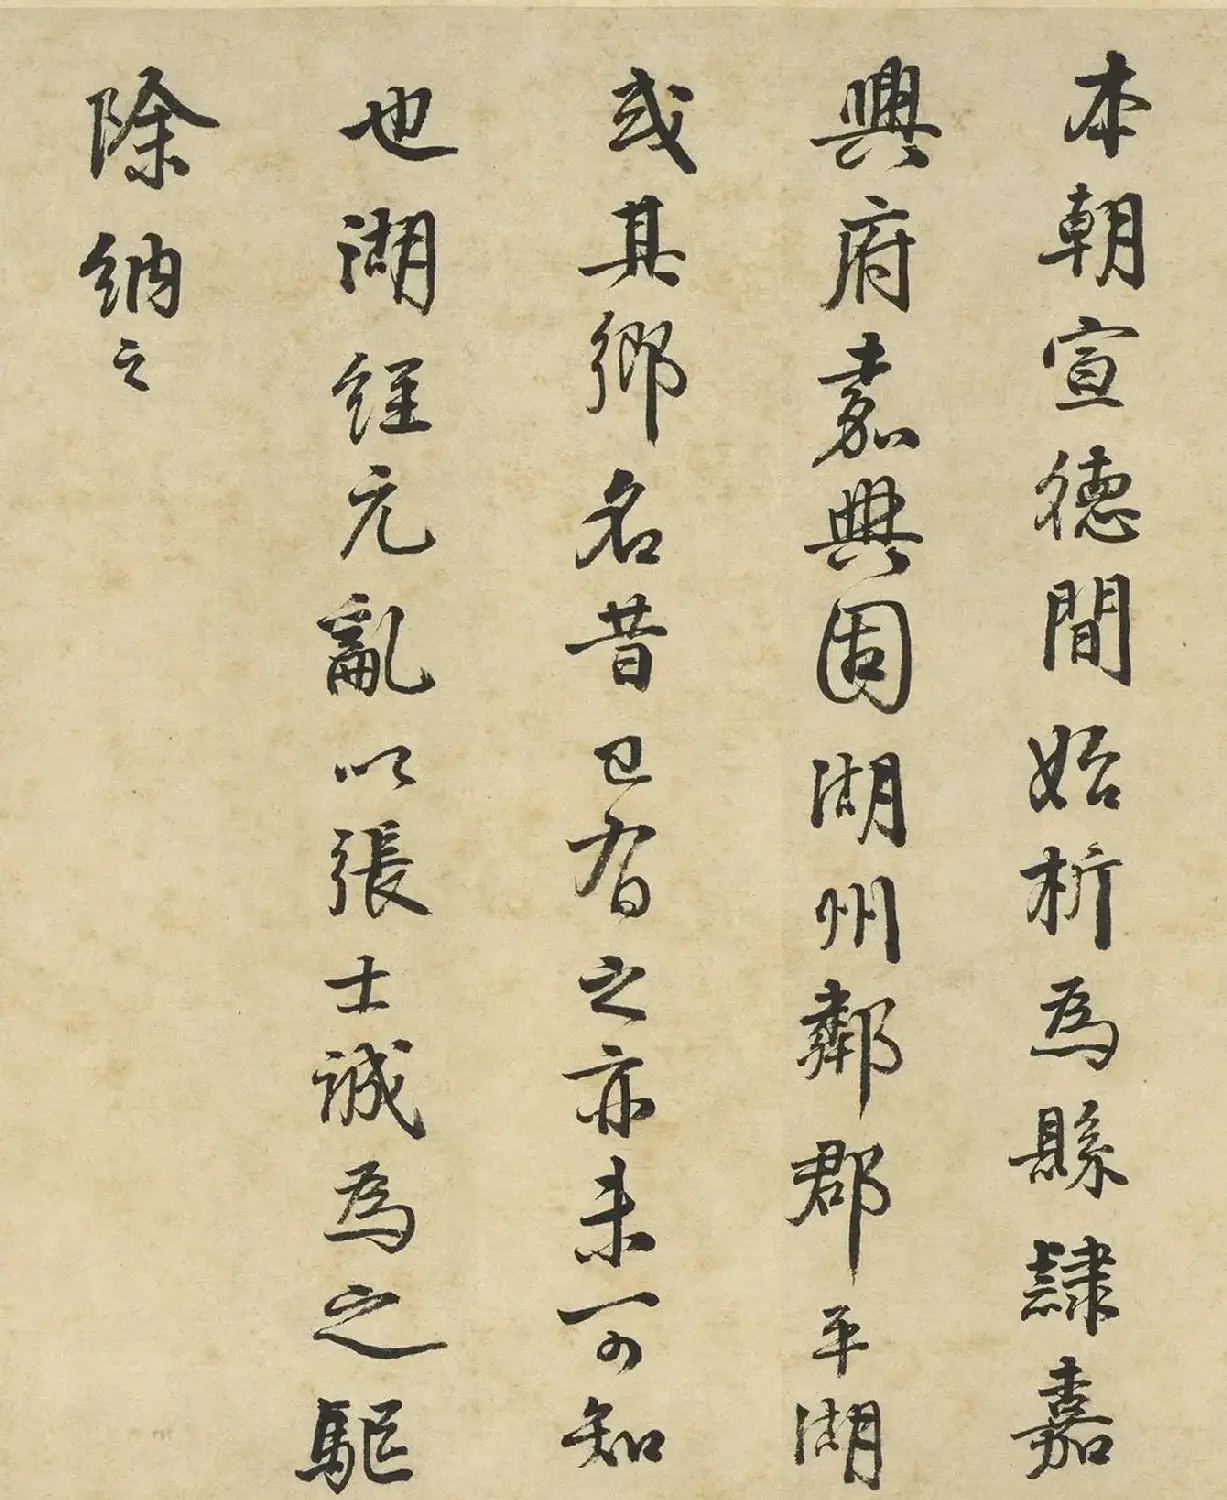 本朝宣德間始析為縣隷嘉
興府嘉興固湖州鄰郡平湖
或其鄉名昔已有之亦未可知
也湖經元亂以張士誠為之驅
除納之